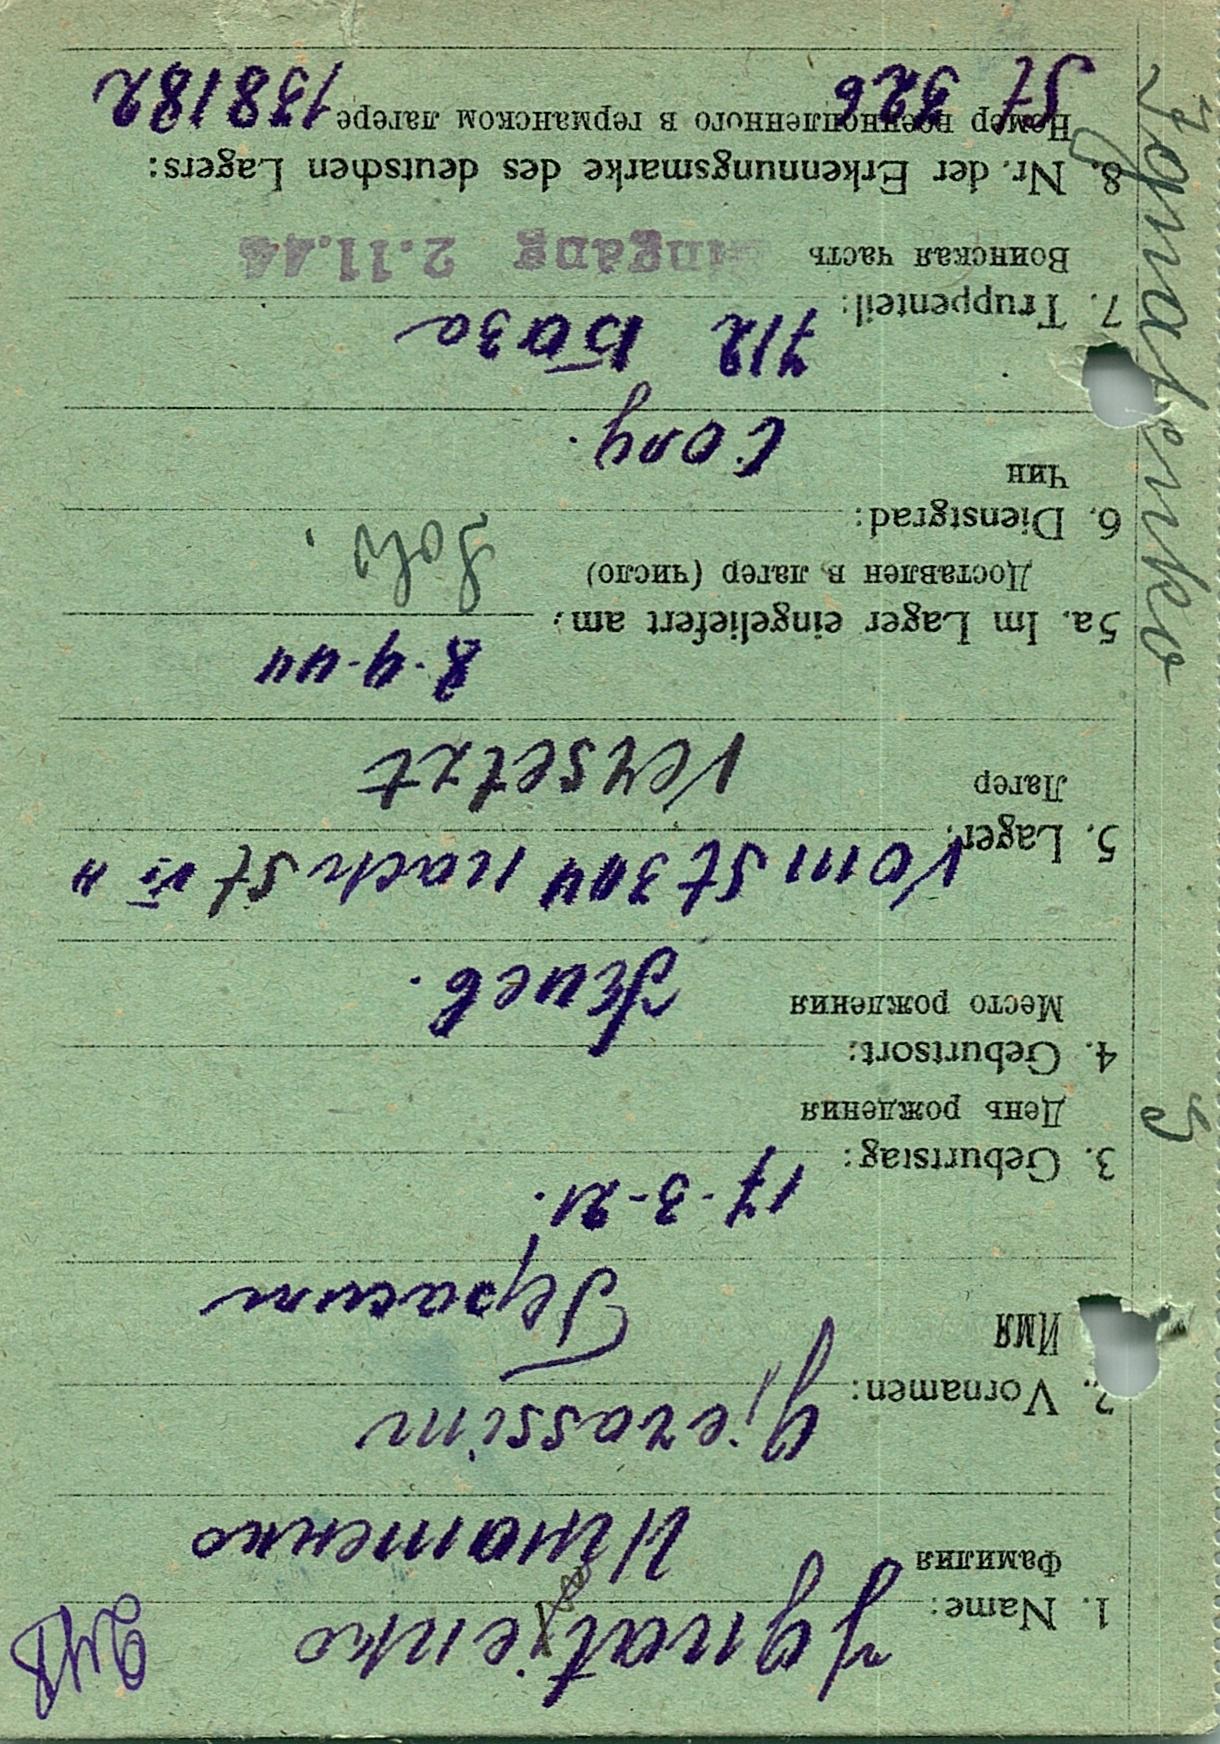 24B
1. Name: Jgnatjenko
Фамилия Игнатенко
2. Vornamen: Gjerassim
Имя Герасим
3. Geburtstag: 17-3-21.
День рождения
4. Geburtsort:
Место рождения Киев.
Vom St 344 nach St VI A
5. Lager:
Лагер Versetzt
8-9-44
5a. Im Lager eingeliefert am:
Доставлен в лагер (число)
Sold.
6. Dienstgrad:
Чин Солд.
712 База
7. Truppenteil:
Воинская часть Eingang 2.11.44
8. Nr. der Erkennungsmarke des deutschen Lagers:
Номер военнопленного в германском лагере
St 326 138182
Ignatenko